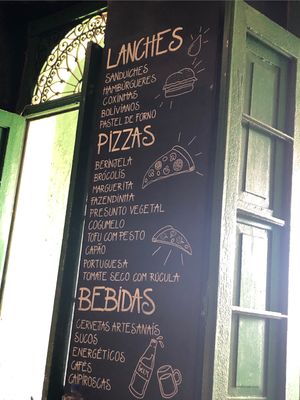 LANCHES
SANDUICHES
HAMBURGUERES
COXINHAS
BOLIVIANOS
PASTEL DE FORNO
PIZZAS
BERINJELA
BRÓCOLIS
MARGUERITA
FAZENDINHA
PRESUNTO VEGETAL
COGUMELO
TOFU COM PESTO
CAPÃO
PORTUGUESA
TOMATE SECO COM RÚCULA
BEBIDAS
CERVEJAS ARTESANAIS
SUCOS
ENERGÉTICOS
CAFÉS
CAIPIROSCAS